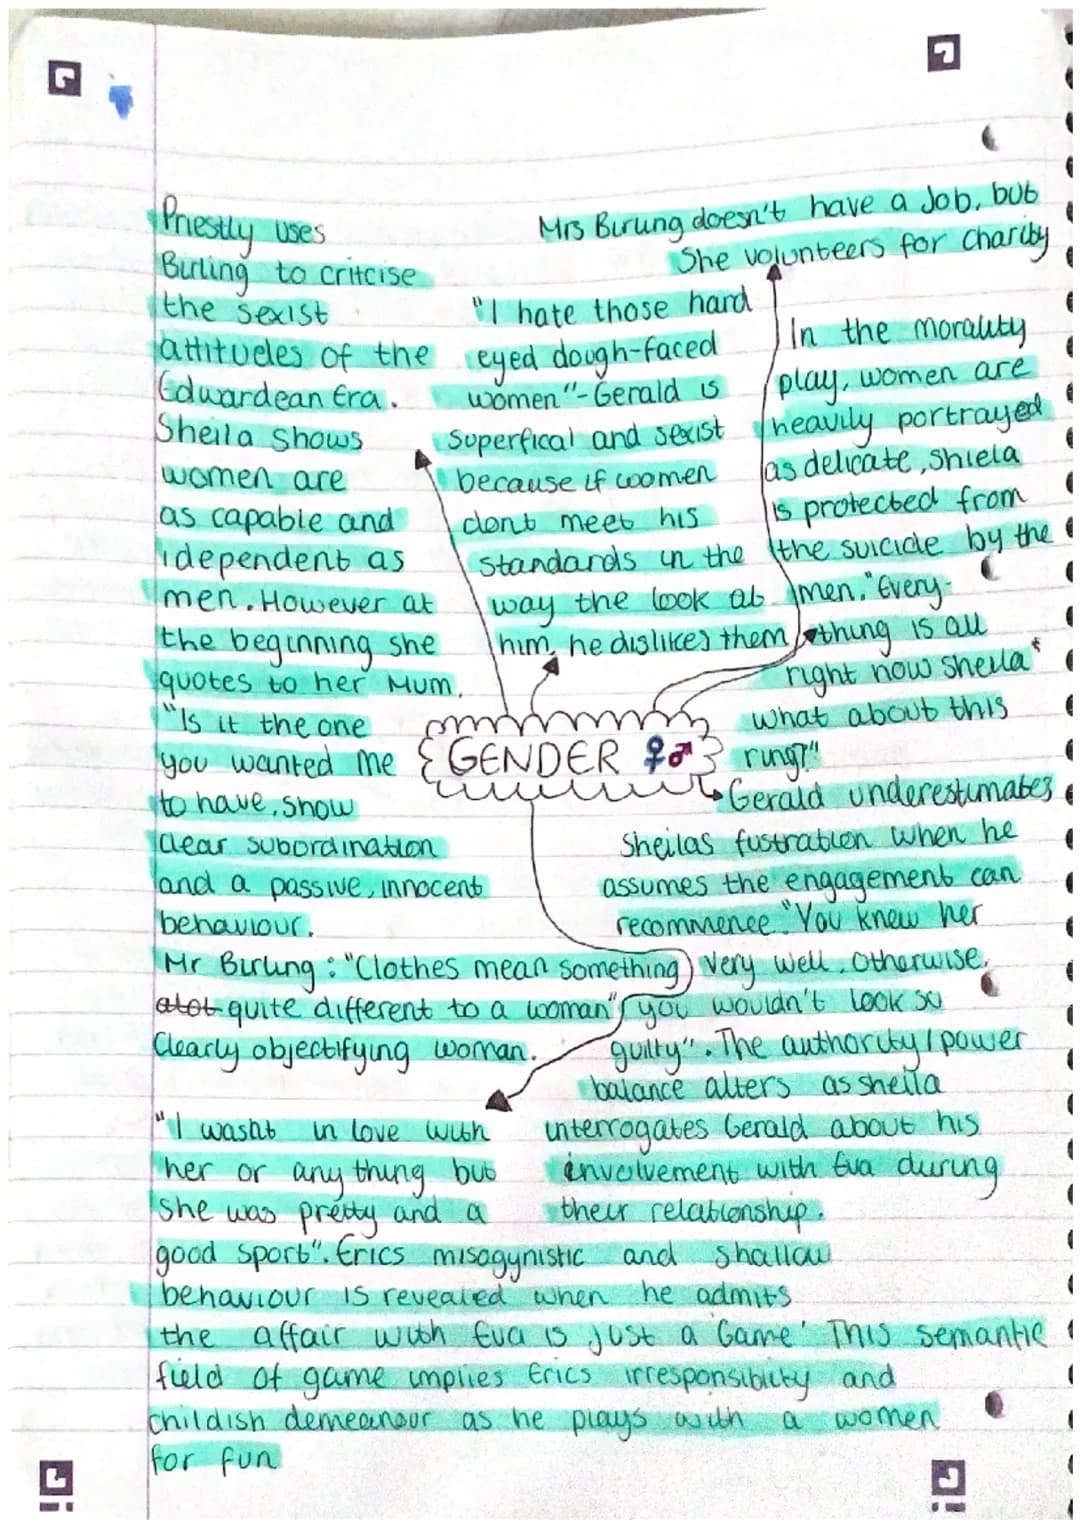 Priestly uses
Birling to critcise
the sexist
attitudes of the
Edwardean Era.
Sheila shows
women are
as capable and
idependent as
men. However at
the beginning she
quotes to her Mum,
"Is it the one
you wanted me
to have, show
clear subordination
and a passive, innocent
behaviour.
Mr Birling : "Clothes mean something
alot quite different to a woman"
Clearly objectifying woman.
"I hate those hard
eyed dough-faced
women" - Gerald is
superfical and sexist
because if women
dont meet his
standards in the
way the look at
him, he dislikes them
Mrs Birling doesn't have a Job, but
She volunteers for charity
In the morality
play, women are
heavily portrayed
as delicate, shiela
is protected from
the suicide by the
men. "Every-
thing is all
right now sheila
what about this
ring?"
GENDER ♀♂
Gerald underestimates
Sheilas fustration when he
assumes the engagement can
recommence. "You knew her
very well. Otherwise,
you wouldn't look so
guilty". The authority/power
balance alters as sheila
interrogates Gerald about his
involvement with Eva during
their relationship.
"I wasnt in love with
her or any thing but
she was pretty and a
good sport". Erics misogynistic and shallow
behaviour is revealed when he admits
the affair with Eva is just a 'Game' This semantic
field of game implies Erics irresponsiblity and
childish demeanour as he plays with a women
for fun